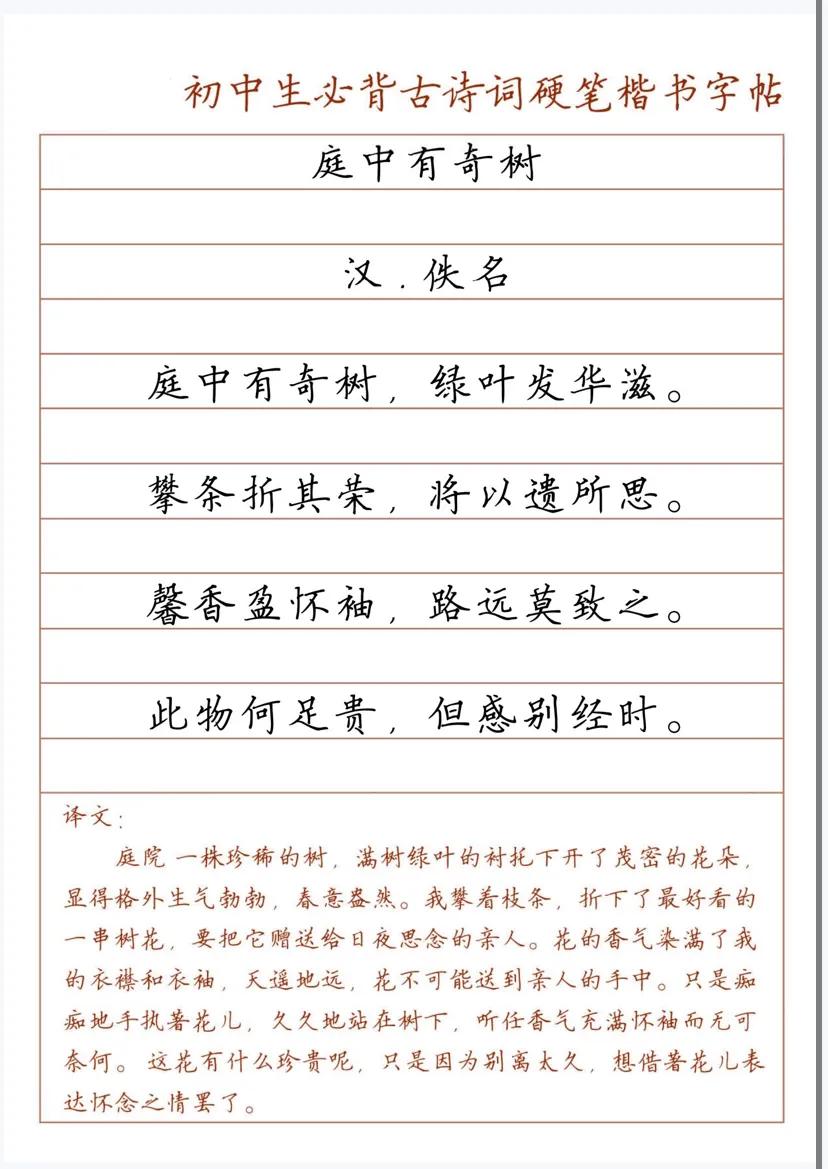 初中生必背古诗词硬笔楷书字帖
庭中有奇树
汉.佚名
庭中有奇树，绿叶发华滋。
攀条折其荣，将以遗所思。
馨香盈怀袖，路远莫致之。
此物何足贵，但感别经时。
译文：
庭院 一株珍稀的树，满树绿叶的衬托下开了茂密的花朵，
显得格外生气勃勃，春意盎然。我攀着枝条，折下了最好看的
一串树花，要把它赠送给日夜思念的亲人。花的香气染满了我
的衣襟和衣袖，天遥地远，花不可能送到亲人的手中。只是痴
痴地手执著花儿，久久地站在树下，听任香气充满怀袖而无可
奈何。 这花有什么珍贵呢，只是因为别离太久，想借著花儿表
达怀念之情罢了。